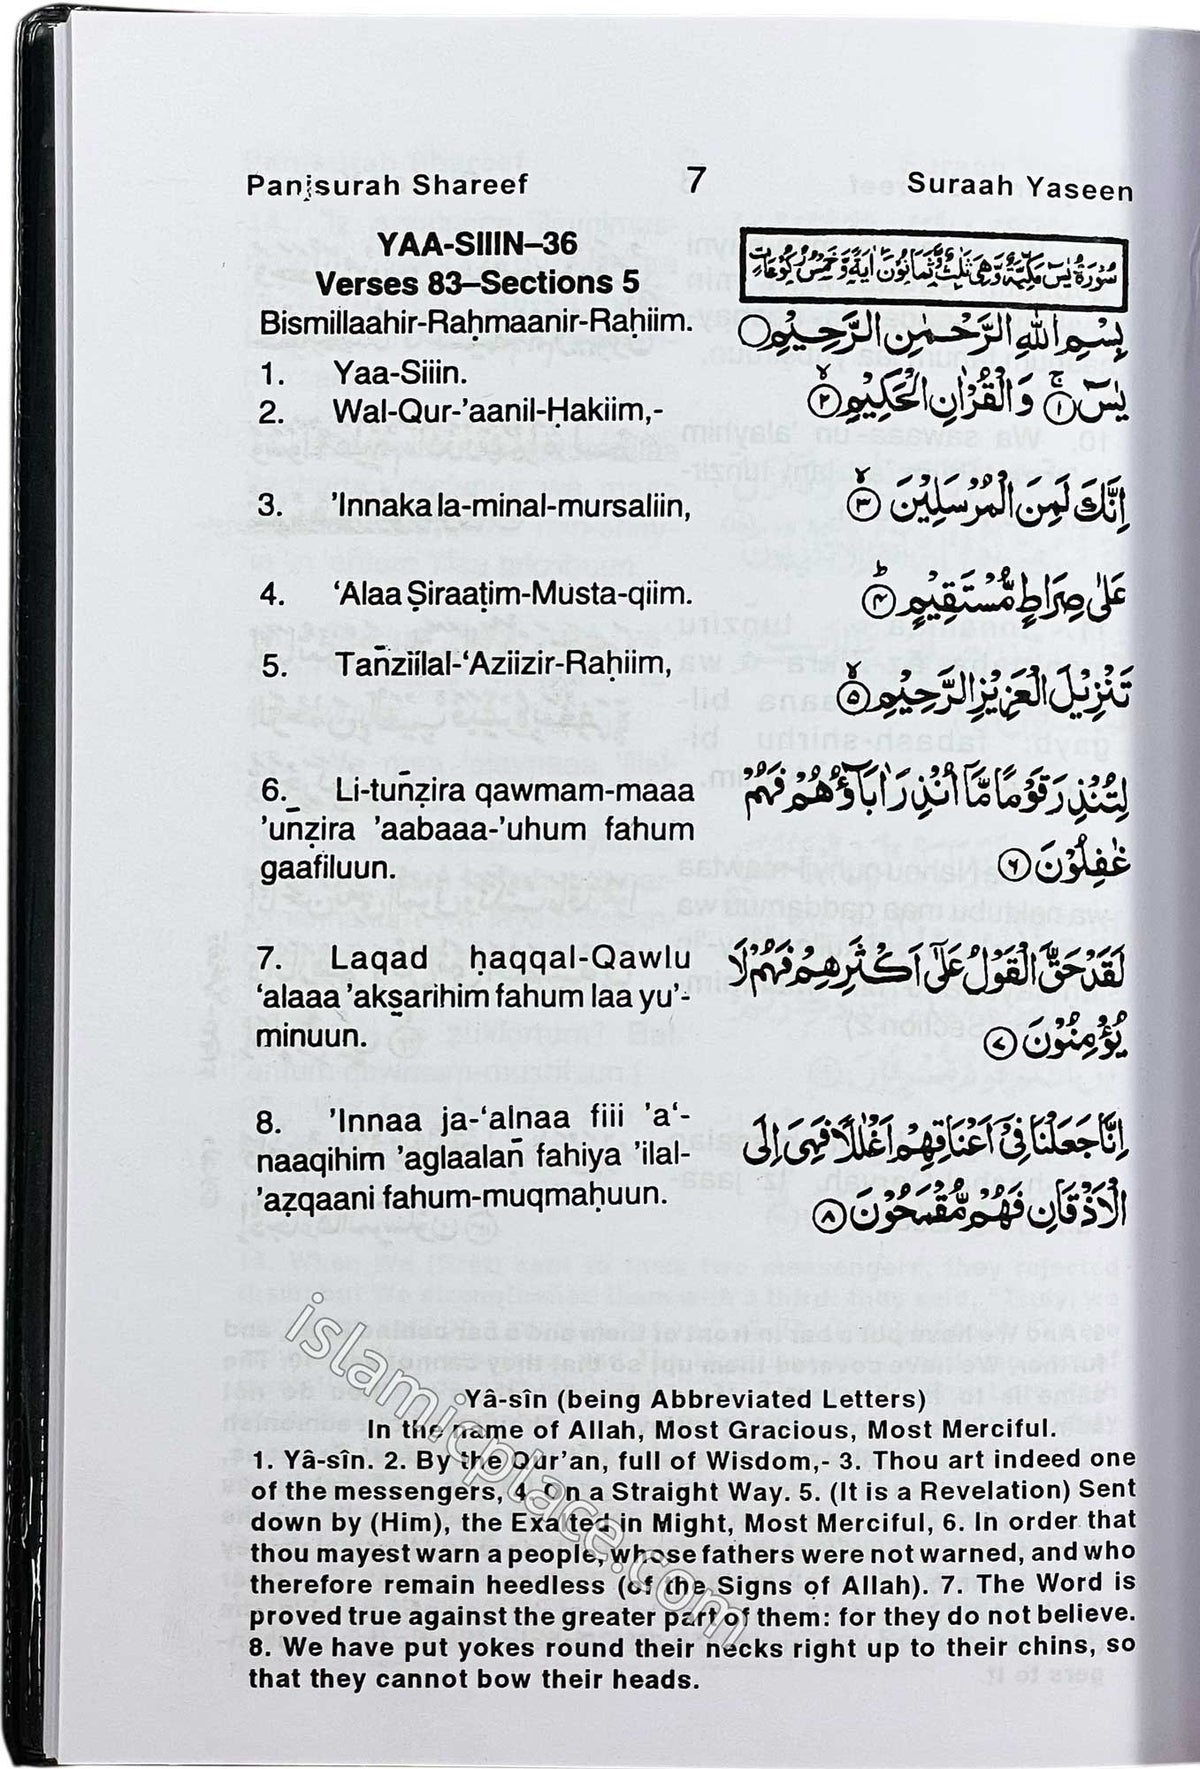 Panjsurah Shareef 7 Suraah Yaseen
YAA-SIIIN–36
Verses 83–Sections 5
Bismillaahir-Raḥmaanir-Raḥiim.
1. Yaa-Siiin.
2. Wal-Qur-’aanil-Ḥakiim,-
3. ’Innaka la-minal-mursaliin,
4. ‘Alaa Ṣiraaṭim-Musta-qiim.
5. Tañziilal-‘Aziizir-Raḥiim,
6. Li-tuñẓira qawmam-maaa
’uñẓira ’aabaaa-’uhum fahum
gaafiluun.
7. Laqad ḥaqqal-Qawlu
‘alaaa ’akṣarihim fahum laa yu’-
minuun.
8. ’Innaa ja-‘alnaa fiii ’a‘-
naaqihim ’aglaalañ fahiya ’ilal-
’aẓqaani fahum-muqmaḥuun.
سُوْرَةُ يٰسٓ مَكِّيَّةٌ وَّهِىَ ثَلٰثٌ وَّثَمَانُوْنَ اٰيَةً وَّخَمْسُ رُكُوْعَاتٍ
بِسْمِ اللّٰهِ الرَّحْمٰنِ الرَّحِيْمِ
يٰسٓ ۚ﴿۱﴾ وَالْقُرْاٰنِ الْحَكِيْمِ ۙ﴿۲﴾
اِنَّكَ لَمِنَ الْمُرْسَلِيْنَ ۙ﴿۳﴾
عَلٰى صِرَاطٍ مُّسْتَقِيْمٍ ؕ﴿۴﴾
تَنْزِيْلَ الْعَزِيْزِ الرَّحِيْمِ ۙ﴿۵﴾
لِتُنْذِرَ قَوْمًا مَّاۤ اُنْذِرَ اٰبَآؤُهُمْ فَهُمْ
غٰفِلُوْنَ ﴿۶﴾
لَقَدْ حَقَّ الْقَوْلُ عَلٰٓى اَكْثَرِهِمْ فَهُمْ لَا
يُؤْمِنُوْنَ ﴿۷﴾
اِنَّا جَعَلْنَا فِىْۤ اَعْنَاقِهِمْ اَغْلٰلًا فَهِىَ اِلَى
الْاَذْقَانِ فَهُمْ مُّقْمَحُوْنَ ﴿۸﴾
Yâ-sîn (being Abbreviated Letters)
In the name of Allah, Most Gracious, Most Merciful.
1. Yâ-sîn. 2. By the Qur’an, full of Wisdom,- 3. Thou art indeed one
of the messengers, 4. On a Straight Way. 5. (It is a Revelation) Sent
down by (Him), the Exalted in Might, Most Merciful, 6. In order that
thou mayest warn a people, whose fathers were not warned, and who
therefore remain heedless (of the Signs of Allah). 7. The Word is
proved true against the greater part of them: for they do not believe.
8. We have put yokes round their necks right up to their chins, so
that they cannot bow their heads.
islamicplace.com